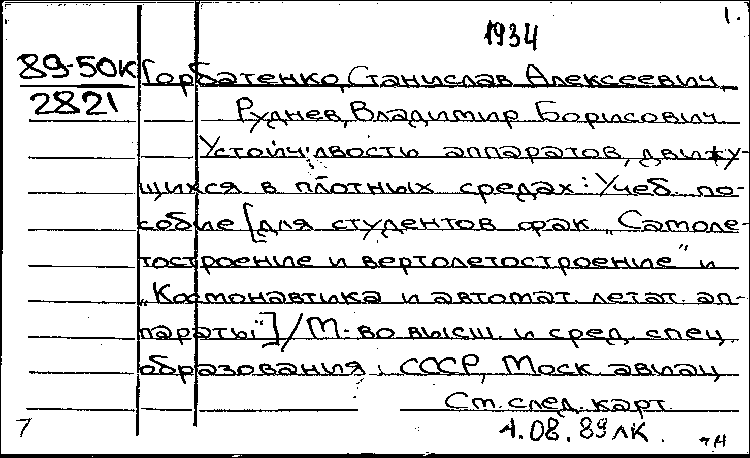 1.
1934
89-50К Горбатенко, Станислав Алексеевич,
2821 Руднев, Владимир Борисович
Устойчивость аппаратов, движу-
щихся в плотных средах: Учеб. по-
собие [для студентов фак. „Самоле-
тостроение и вертолетостроение" и
„Космонавтика и автомат. летат. ап-
параты"] / М-во высш. и сред. спец.
образования СССР, Моск авиац
См. след. карт.
7 4.08.89 ЛК.